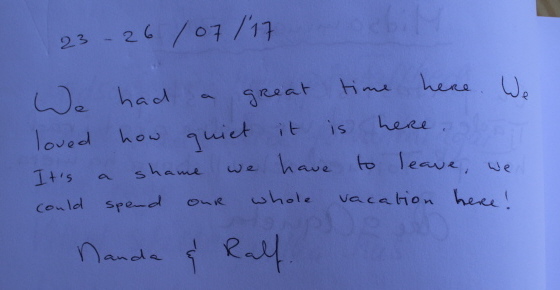 23 - 26 / 07 / '17
We had a great time here. We
loved how quiet it is here.
It's a shame we have to leave, we
could spend our whole vacation here!
Nanda & Ralf.